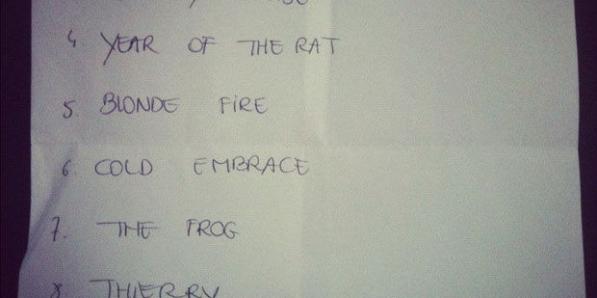 4. YEAR OF THE RAT
5. BLONDE FIRE
6. COLD EMBRACE
7. THE FROG
8. THIERRY